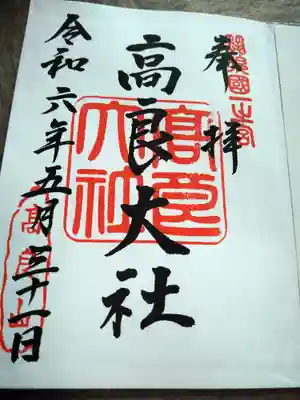 奉拝
筑後國一之宮
高良大社
髙良大社
令和六年五月三十一日